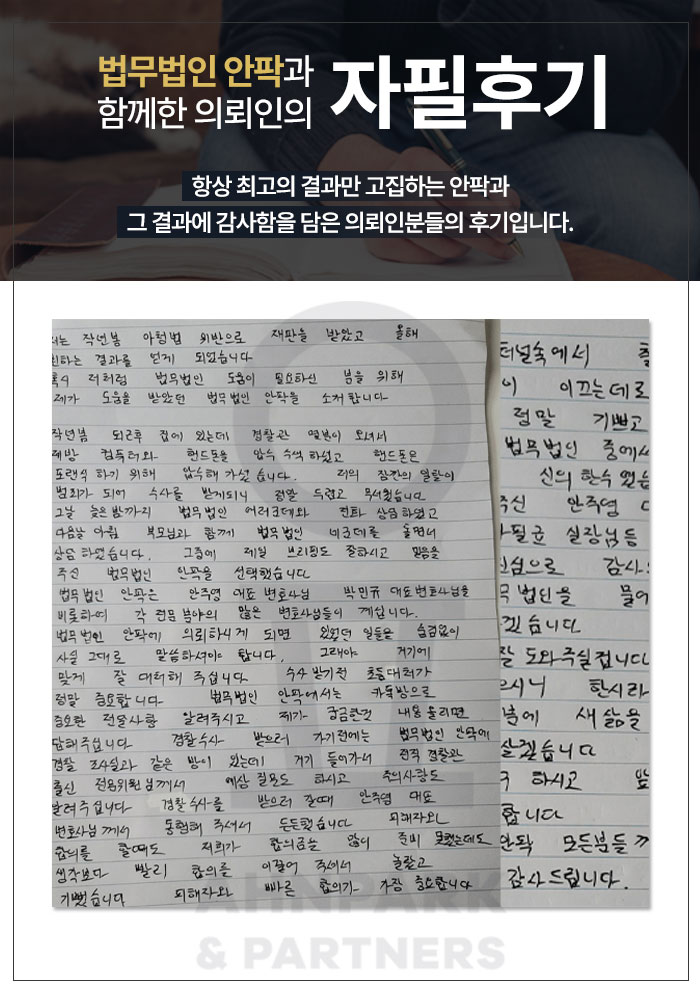 법무법인 안팍과
함께한 의뢰인의
자필후기
항상 최고의 결과만 고집하는 안팍과
그 결과에 감사함을 담은 의뢰인분들의 후기입니다.
저는 작년봄 아청법 위반으로 재판을 받았고 올해
하는 결과를 얻게 되었습니다
저처럼 법무법인 도움이 필요하신 분을 위해
제가 도움을 받았던 법무법인 안팍을 소개합니다
작년봄 퇴근후 집에 있는데 경찰관 몇분이 오셔서
제방 컴퓨터와 핸드폰을 압수 수색 하셨고 핸드폰은
포렌식 하기 위해 압수해 가셨습니다. 저의 잠깐의 일탈이
범죄가 되어 수사를 받게되니 정말 두렵고 무서웠습니다
그날 늦은밤까지 법무법인 여러군데와 전화 상담하였고
다음날 아침 부모님과 함께 법무법인 네군데를 돌면서
상담 하였습니다. 그중에 제일 브리핑도 잘하시고 믿음을
주신 법무법인 안팍을 선택했습니다
법무법인 안팍은 안주영 대표 변호사님 박민규 대표변호사님을
비롯하여 각 전문 분야의 많은 변호사님들이 계십니다.
법무법인 안팍에 의뢰하시게 되면 있었던 일들을 숨김없이
사실 그대로 말씀하셔야 됩니다. 그래야 거기에
맞게 잘 대처해 주십니다 수사 받기전 초동대처가
정말 중요합니다 법무법인 안팍에서는 카톡방으로
중요한 전달사항 알려주시고 제가 궁금한것 내용 올리면
답해주십니다 경찰수사 받으러 가기전에는 법무법인 안팍에
경찰 조사실과 같은 방이 있는데 거기 들어가서 전직 경찰관
출신 전문위원님께서 예상 질문도 하시고 주의사항도
알려주십니다 경찰 수사를 받으러 갈때 안주영 대표
변호사님께서 동행해 주셔서 든든했습니다 피해자와
합의를 할때도 저희가 합의금을 많이 준비 못했는데도
생각보다 빨리 합의를 이끌어 주셔서 놀랐고
기뻤습니다 피해자와 빠른 합의가 가장 중요합니다
터널속에서
이 이끄는데로
정말 기쁘고
법무법인 중에서
신의 한수 였는
주신 안주영
실장님등
진심으로 감사
법인을 믿어
겠습니다
잘 도와주실겁니다
으시니 한시라
봄에 새 삶을
살겠습니다
하시고 앞
합니다
안팍 모든분들께
감사드립니다.
AHNPARK
& PARTNERS